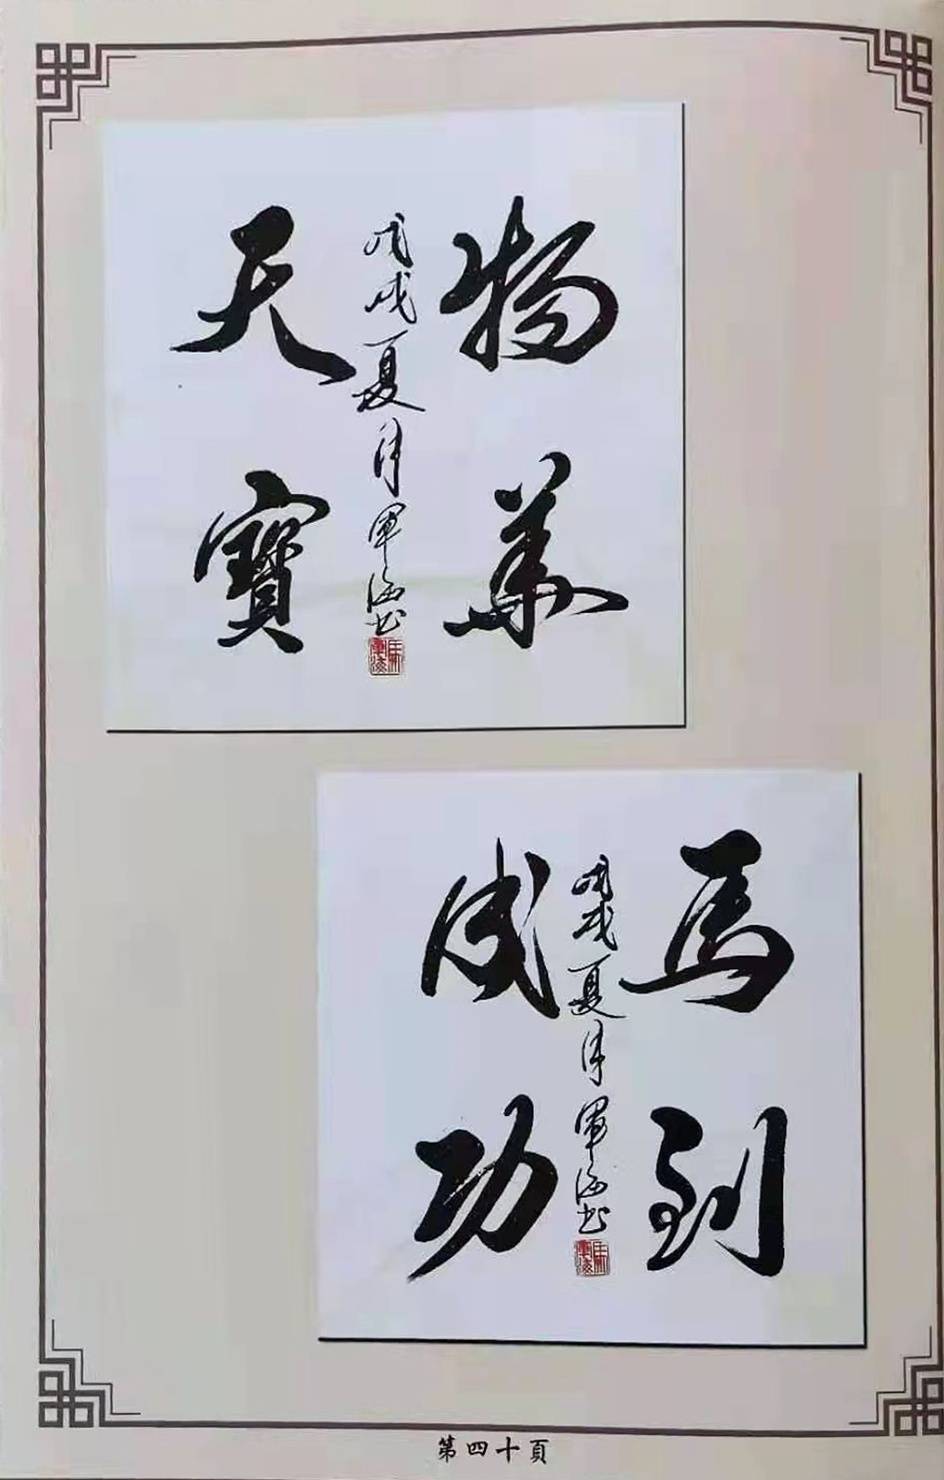 物華
天寶
戊戌夏月軍海书
馬到
成功
戊戌夏月軍海书
第四十頁